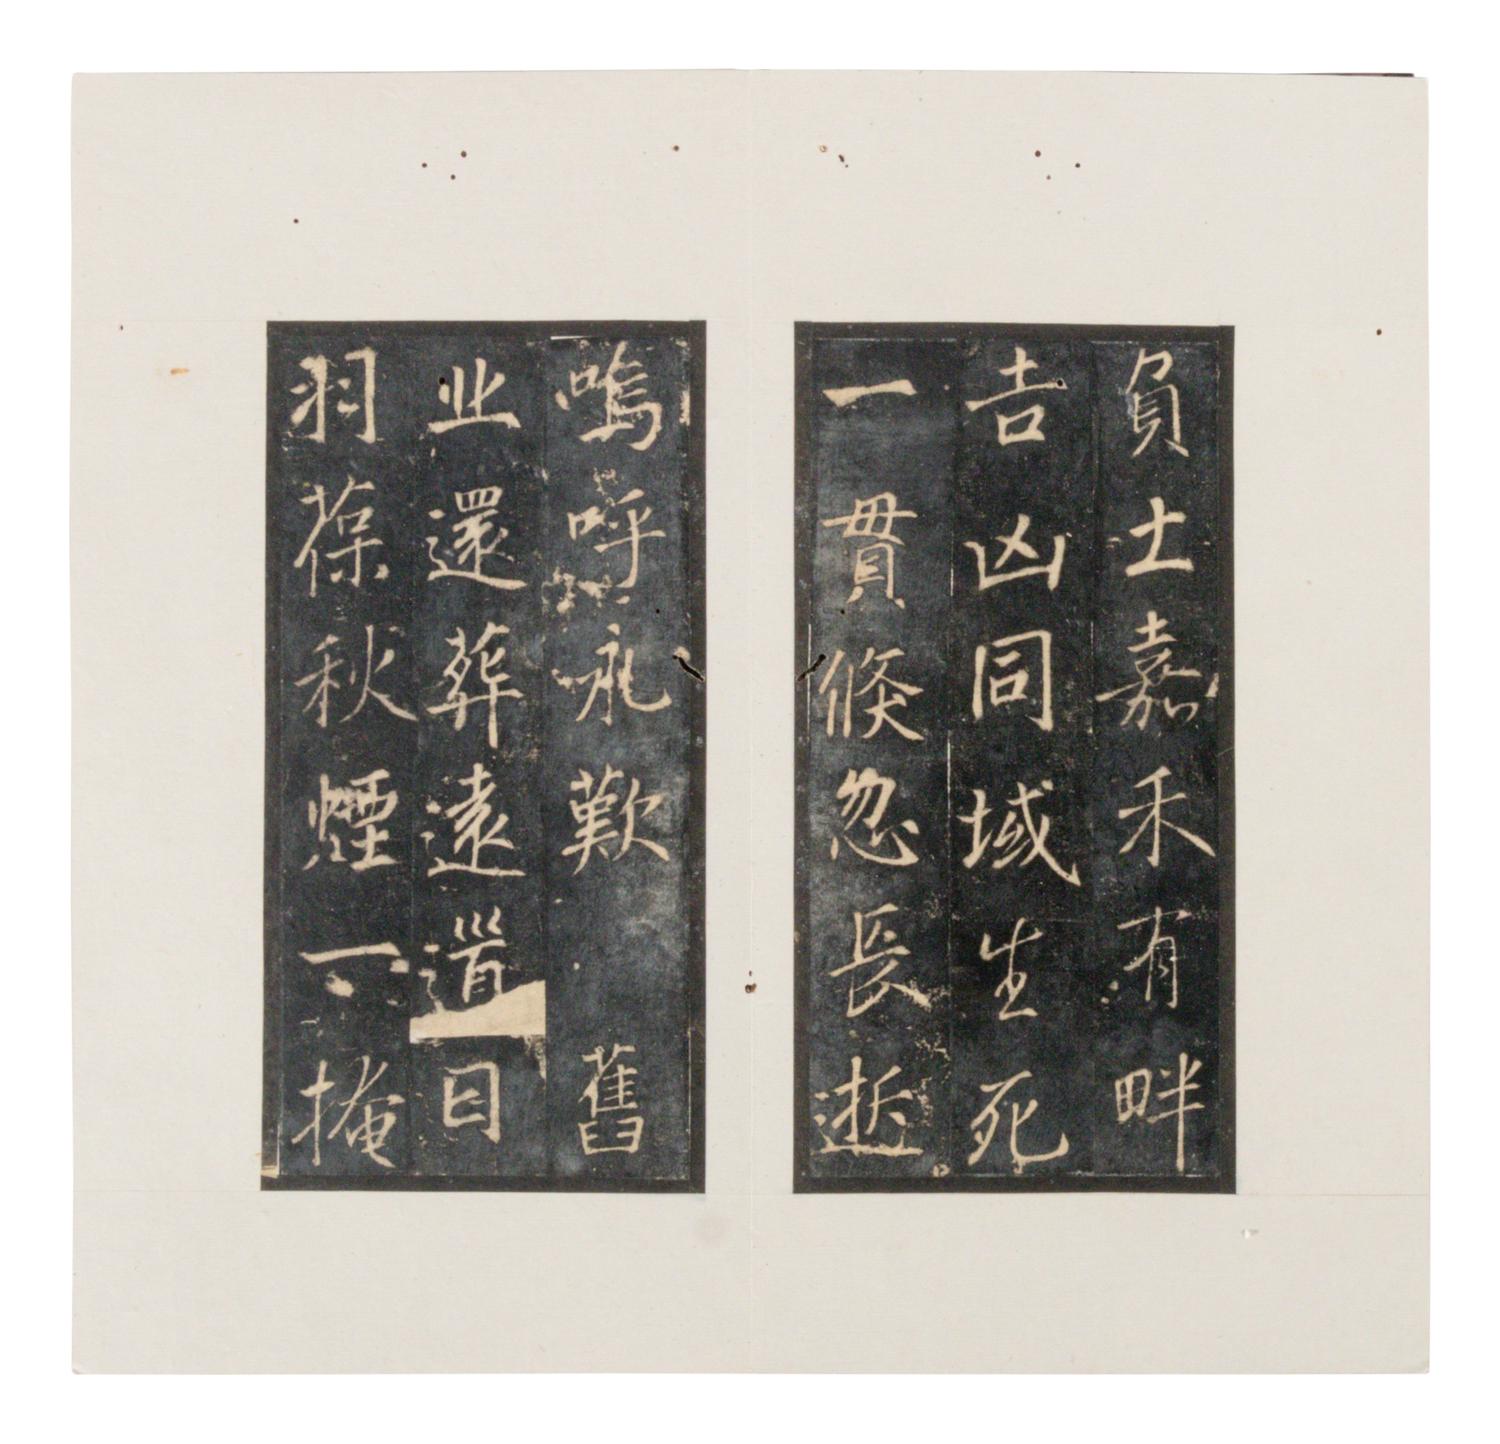 負士嘉禾有畔
吉凶同域生死
一貫倏忽長逝
嗚呼永歎舊
丘還葬遠道日
羽葆秋煙一掩